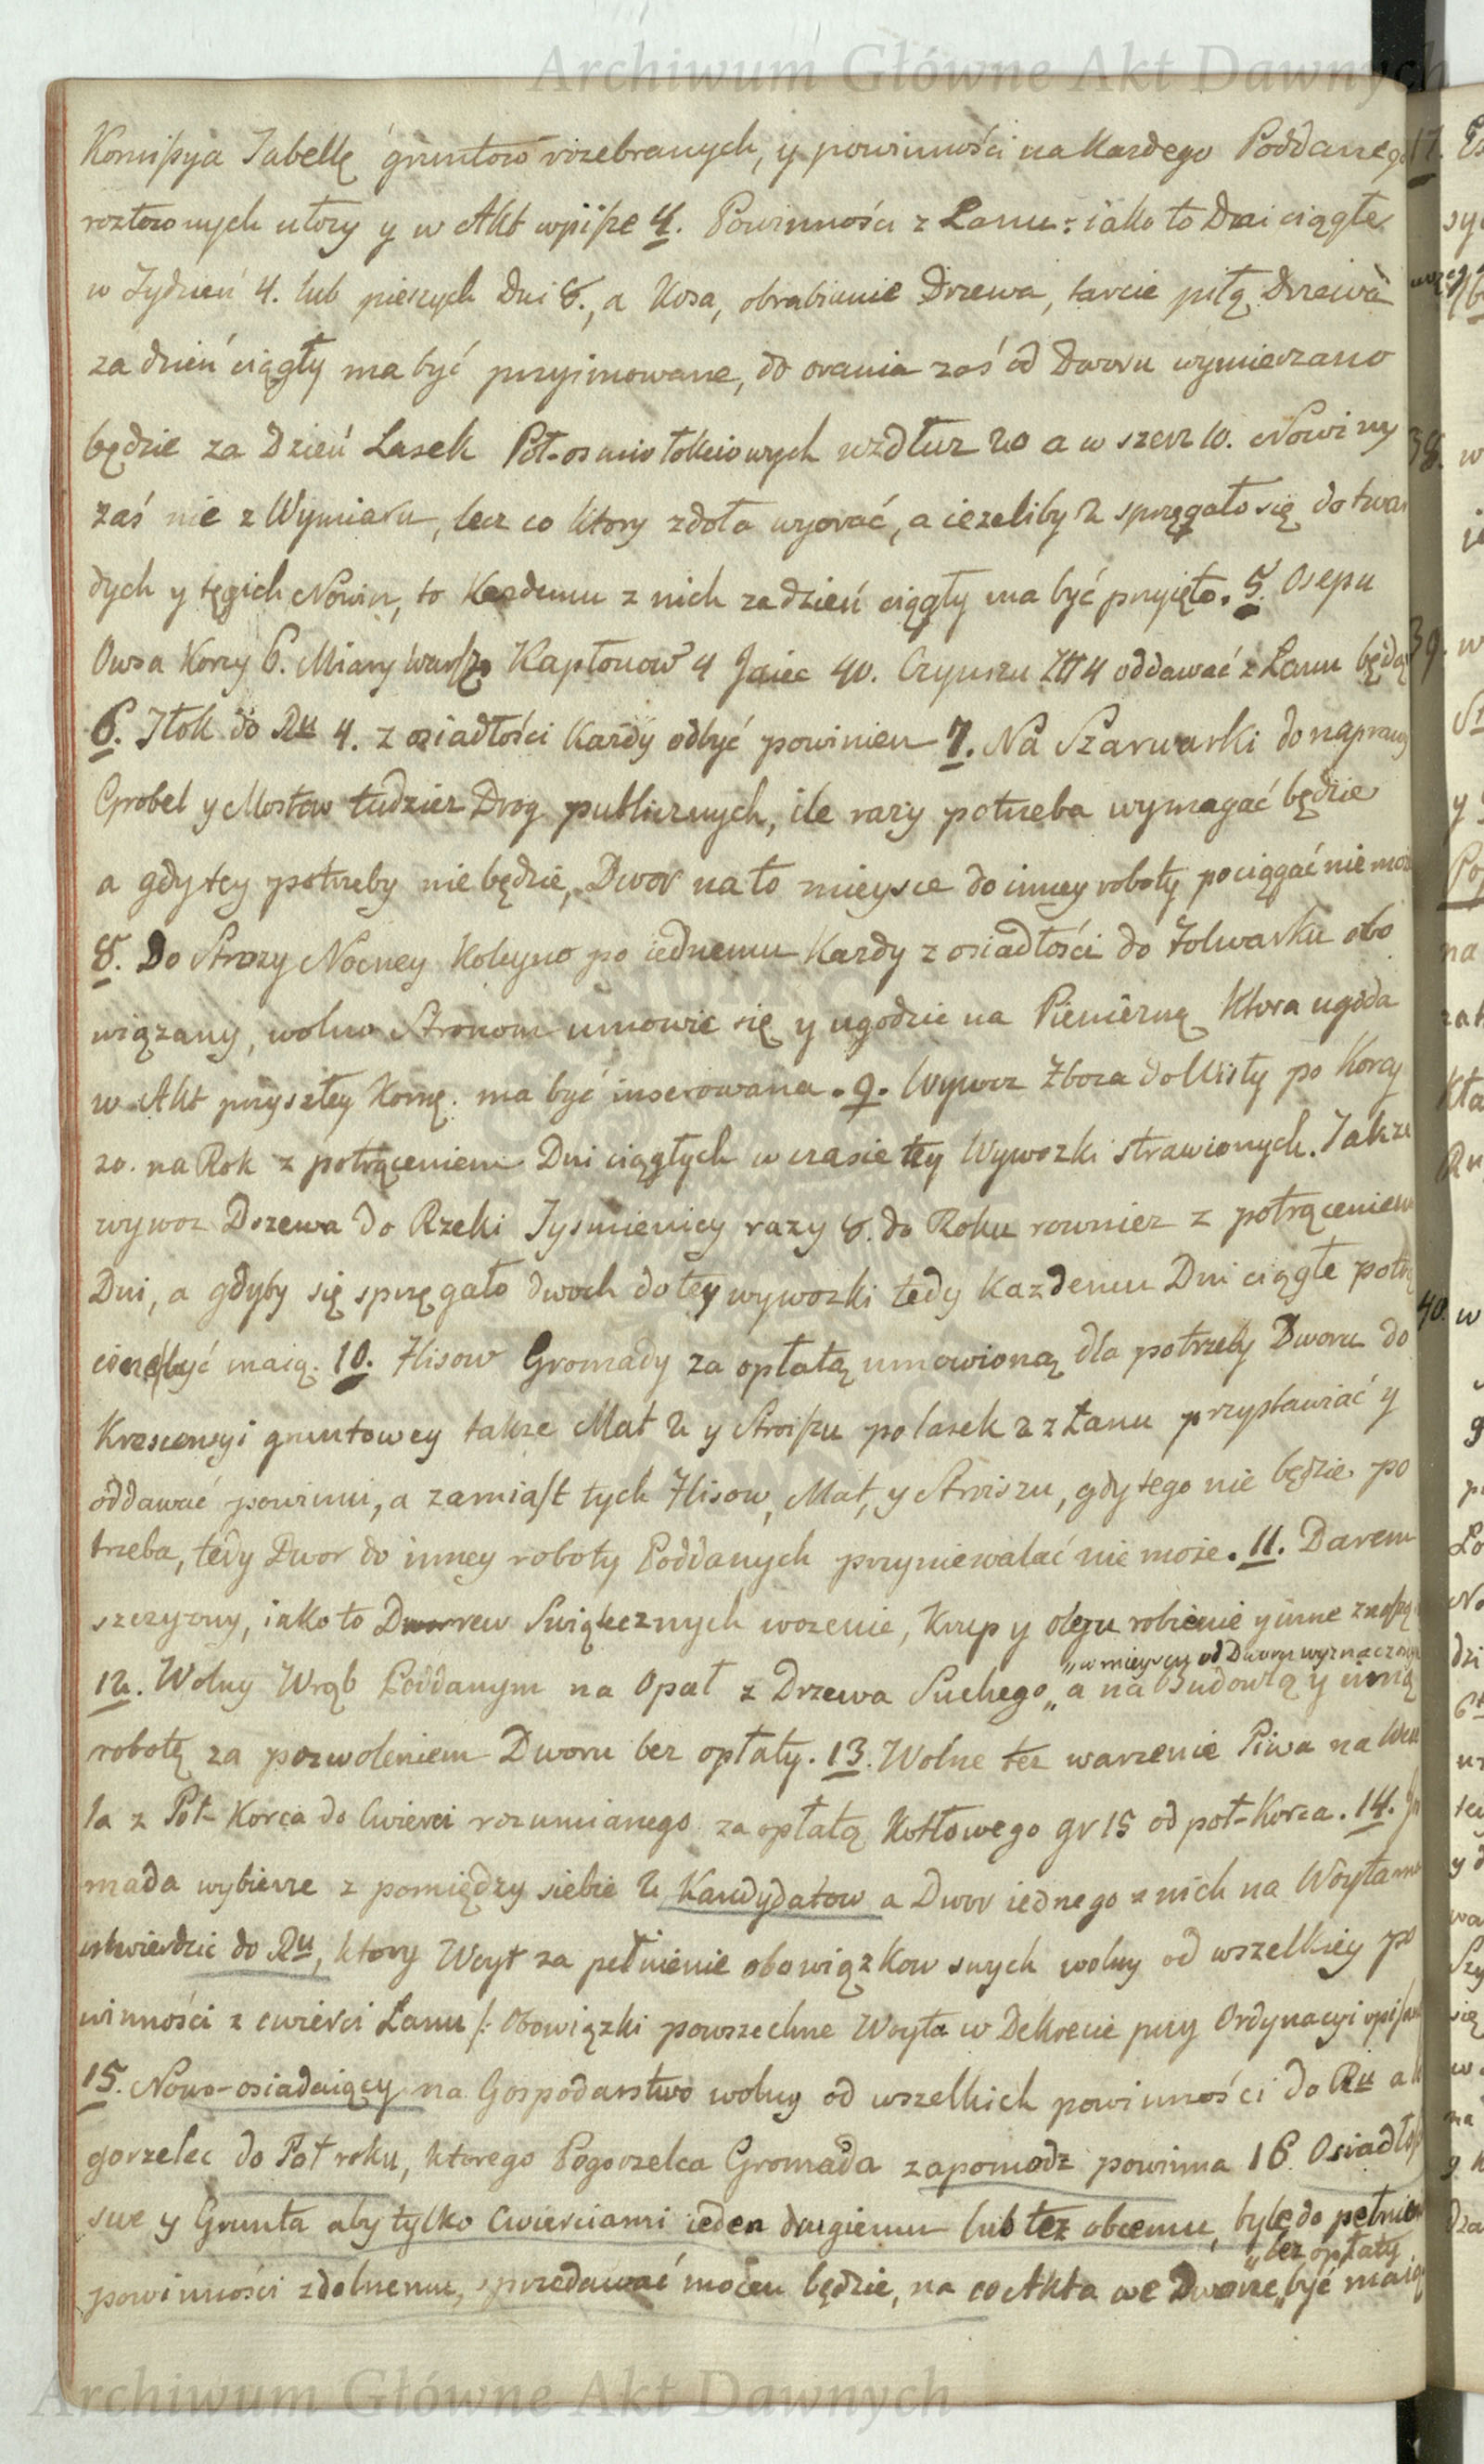 Archiwum Główne Akt Dawnych
Komissya Tabellę gruntow rozebranych, y powinności na Kazdego Poddanego
rozłozonych ułozy y w Akt wpisze 4. Powinności z Łanu: iako to Dni ciągłe
w Tydzień 4. lub pieszych Dni 8., a Kosa, obrabianie Drzewa, tarcie piłą Drzewa
za dzień ciągły ma być przyimowane, do orania zaś od Dworu wymierzano
będzie za Dzień Lasek Poł-osmiołokciowych wzdłuz 20 a w szerz 10. Nowiny
zaś nie z Wymiaru, lecz co ktory zdoła wyorać, a iezeliby 2 sprzęgało się do twar
dych y tęgich Nowin, to Kazdemu z nich za dzień ciągły ma być przyięto. 5. Osepu
Owsa Korcy 6. Miary Warsz. Kapłonow 4 Jaiec 40. Czynszu Złł 4 oddawać z Łanu będą
6. Tłok do Ru 4. z osiadłości Kazdy odbyć powinien 7. Na Szarwarki do naprawy
Grobel y Mostow tudziez Drog publicznych, ile razy potrzeba wymagać będzie
a gdy tey potrzeby nie będzie, Dwor na to mieysce do inney roboty pociągać nie moze
8. Do Strozy Nocney Koleyno po iednemu Kazdy z osiadłości do Folwarku obo
wiązany, wolno Stronom umowic się y ugodzic na Pieniezną Ktora ugoda
w Akt przyszłey Komę. ma być inserowana. 9. Wywoz Zboza do Wisły po Korcy
20. na Rok z potrąceniem Dni ciągłych w czasie tey Wywozki strawionych. Takze
wywoz Drzewa do Rzeki Tysmienicy razy 8. do Roku rowniez z potrąceniem
Dni, a gdyby się sprzęgało dwoch do tey wywozki tedy Kazdemu Dni ciągłe potrą
cone być maią. 10. Flisow Gromady za opłatą umowioną dla potrzeby Dworu do
Krescencyi gruntowey takze Mat 2 y Stroiszu po lasek 2 z Łanu przystawiać y
oddawać powinni, a zamiast tych Flisow, Mat, y Stroiszu, gdy tego nie będzie po
trzeba, tedy Dwor do inney roboty Poddanych przyniewalać nie może. 11. Darem
szczyzny, iako to Drew Swiątecznych wozenie, Krup y oleju robienie y inne znaszą
„w mieyscu od Dworu wyznaczonym
12. Wolny Wrąb Poddanym na Opał z Drzewa Suchego „ a na Budowlą y inną
robotę za pozwoleniem Dworu bez opłaty. 13. Wolne tez warzenie Piwa na Wese
la z Poł-Korca do Cwierci rozumianego za opłatą Kotłowego gr 15 od poł-Korca. 14. Gro
mada wybierze z pomiędzy siebie 2 Kandydatow a Dwor iednego z nich na Woyta ma
utwierdzic do Ru, ktory Woyt za pełnienie obowiązkow swych wolny od wszelkiey po
winności z cwierci Łanu /: Obowiązki powszechne Woyta w Dekrecie przy Ordynacyi opisane
15. Nowo-osiadaiący na Gospodarstwo wolny od wszelkich powinności do Ru a
gorzelec do Poł roku, ktorego Pogorzelca Gromada zapomodz powinna 16. Osiadłości
swe y Grunta aby tylko Cwierciami ieden drugiemu lub tez obcemu, byle do pełnienia
„bez opłaty
powinności zdolnemu, sprzedawać mocen będzie, na co Akta we Dworze „ być maią
Archiwum Główne Akt Dawnych